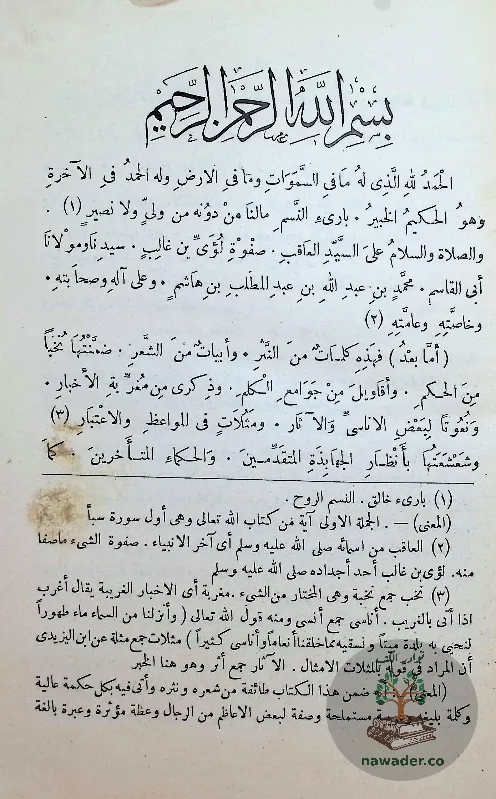 بِسْمِ اللهِ الرَّحْمٰنِ الرَّحِيمِ
الحَمْدُ للهِ الَّذِى لهُ مَا فى السَّمَوَاتِ وَمَا فى الارضِ وله الحمدُ فى الآخرةِ
وهوُ الحكيمُ الخبيرُ . بارىءِ النَّسمِ مالنا مِنْ دُونه من ولىٍّ ولا نصيرٍ (١) .
والصلاة والسلامُ علىَ السَّيِّدِ العاقبِ . صفْوةِ لُؤىِّ بن غالبٍ . سيدِناومولانا
أبى القاسم . محمَّدِ بنِ عبدِ اللهِ بنِ عبدِ المطلبِ بنِ هاشمٍ . وعلى آلهِ وصحابتهِ .
وخاصَّتِهِ وعامَّتِهِ (٢)
( أمَّا بعدُ ) فهَذِهِ كلماتٌ منَ النَّثرِ . وأبياتٌ منَ الشَّعرِ . ضمَّنْتُهَا نُخباً
مِنَ الحكمِ . وأقاويلَ منْ جوَامعِ الكلمِ . وذِكرى من مُغرِّبةِ الأخبارِ .
ونُعُوتاً لِبَعْضِ الاناسىِّ والآثارِ . ومَثُلاتٍ فى المواعظِ والاعتبارِ (٣)
وشَعْشَعْتُهَا بأنظارِ الجهابِذةِ المتقدِّمينَ . والحكماءِ المتأخرينَ . كمَا
(١) بارىء خالق . النسم الروح .
(المعنى) — . الجملة الاولى آية من كتاب الله تعالى وهى أول سورة سبأ
(٢) العاقب من اسمائه صلى الله عليه وسلم أى آخر الانبياء . صفوة الشىء ماصفا
منه. لؤى بن غالب أحد أجداده صلى الله عليه وسلم
(٣) نخب جمع نخبة وهى المختار من الشىء. مغربة أى الاخبار الغريبة يقال أغرب
اذا أتى بالغريب . أناسى جمع أنسى ومنه قول الله تعالى ( وأنزلنا من السماء ماء طهوراً
لنحيى به بلدة ميتاً ونسقيه مماخلقنا أنعاماً وأناسى كثيراً ) مثلات جمع مثلة عن ابن اليزيدى
أن المراد فى قوله بالمثلات الامثال . الآثار جمع أثر وهو هنا الخبر
(المعنى) ضمن هذا الكتاب طائفة من شعره ونثره وأتى فيه بكل حكمة عالية
وكلمة بليغة مستملحة وصفة لبعض الاعاظم من الرجال وعظة مؤثرة وعبرة بالغة
nawader.co